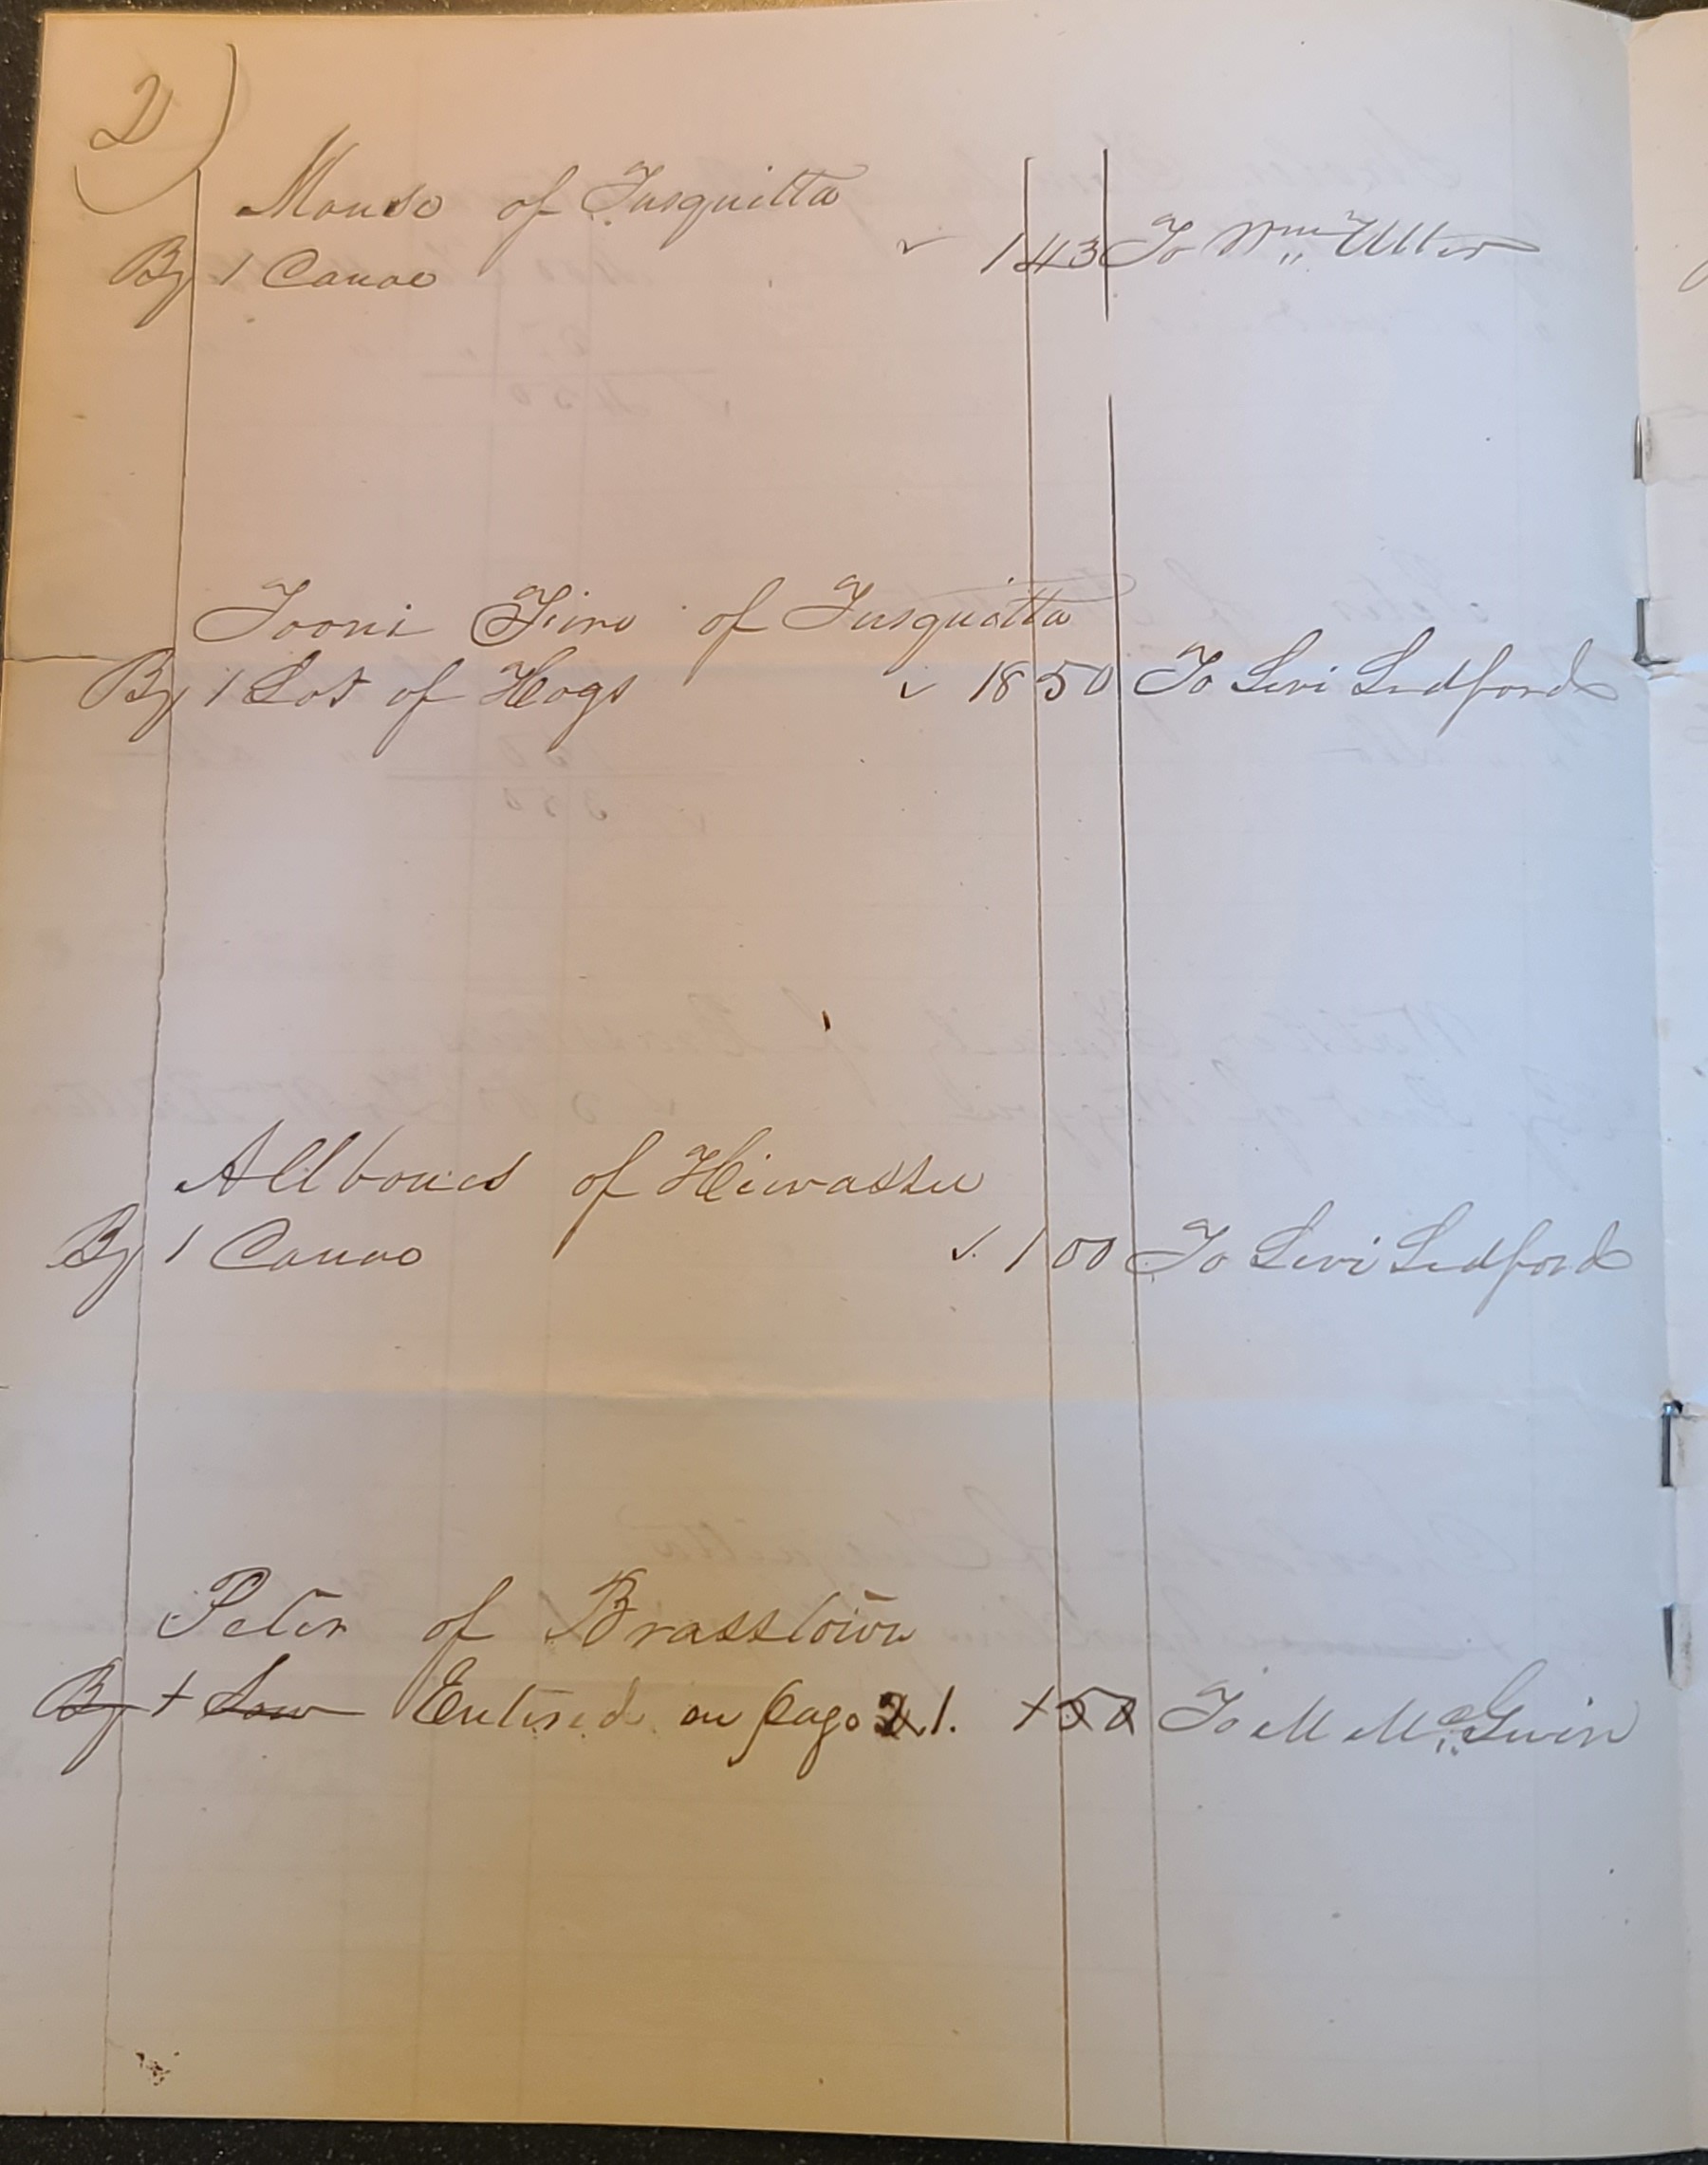 2)
Mouse of Tusquitta
By 1 Canoe ✓ 1 43 To Wm Utter
Tooni Fire of Tusquitta
By 1 Lot of Hogs ✓ 18 50 To Levi Ledford
Allbones of Hiwassee
By 1 Canoe ✓ 1 00 To Levi Ledford
Peter of Brasstown
By 1 Sow Entered on page 21. 1 50 To M McGuin